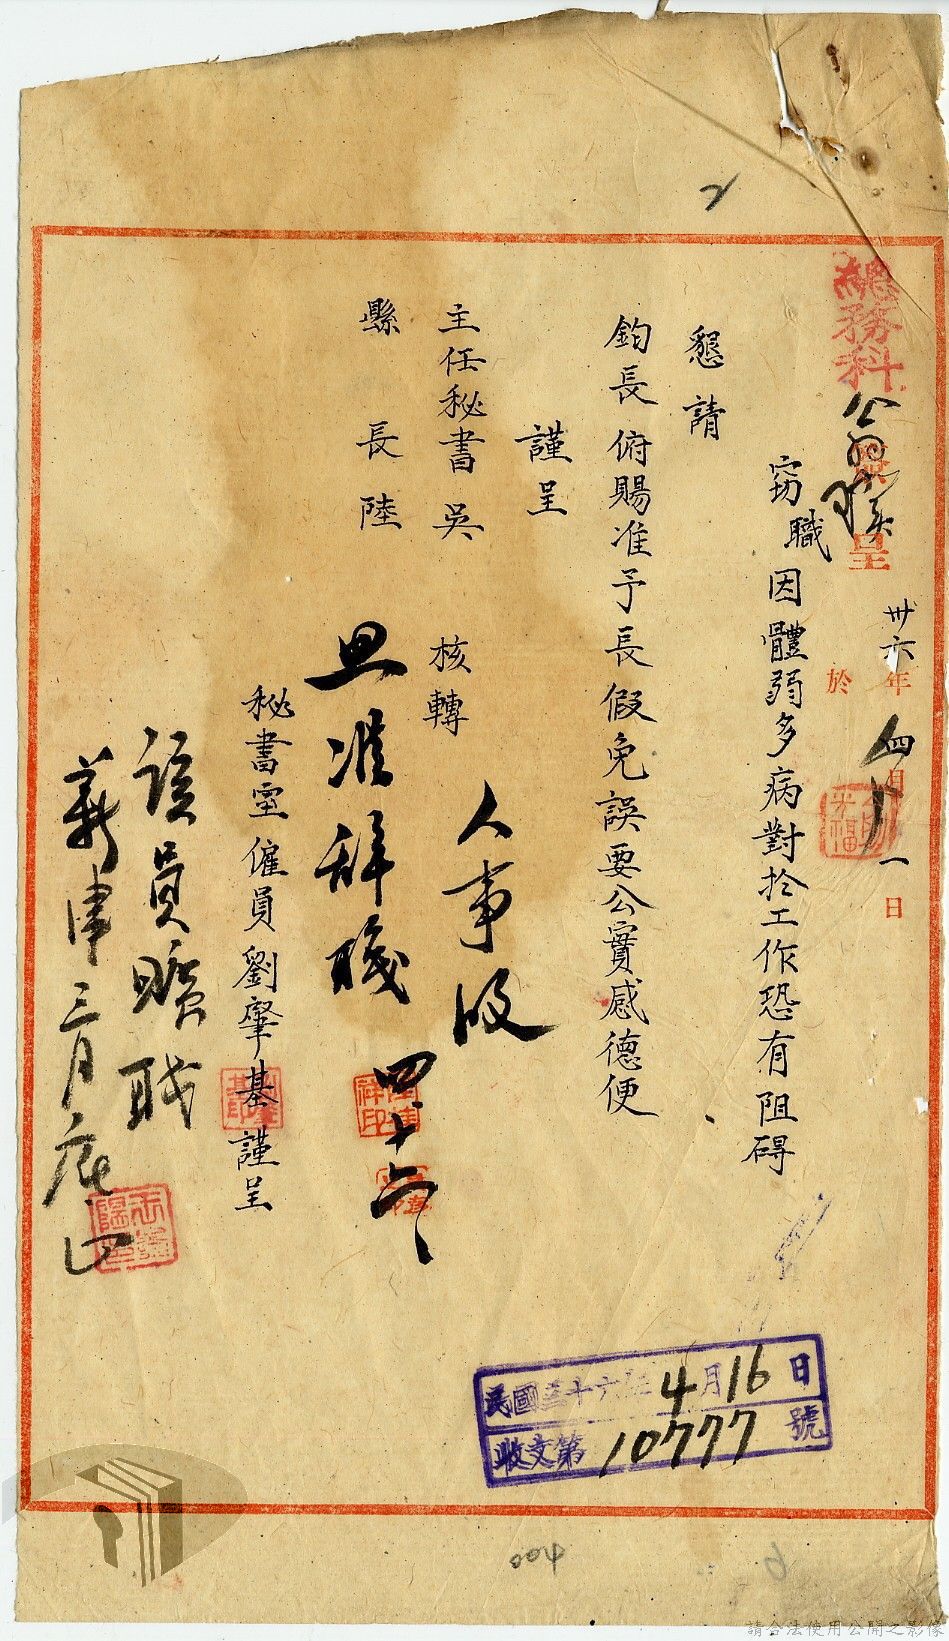 總務科
簽呈
卅六年四月一日
於
竊職因體弱多病對於工作恐有阻碍
懇請
鈞長俯賜准予長假免誤要公實感德便
謹呈
主任秘書吳 核轉
縣長陸
人事股
准辞职
四、十六
秘書室僱員劉肇基謹呈
該員曠职
三月底止
民國三十六年4月16日
收文第10777號
400
請合法使用公開之影像